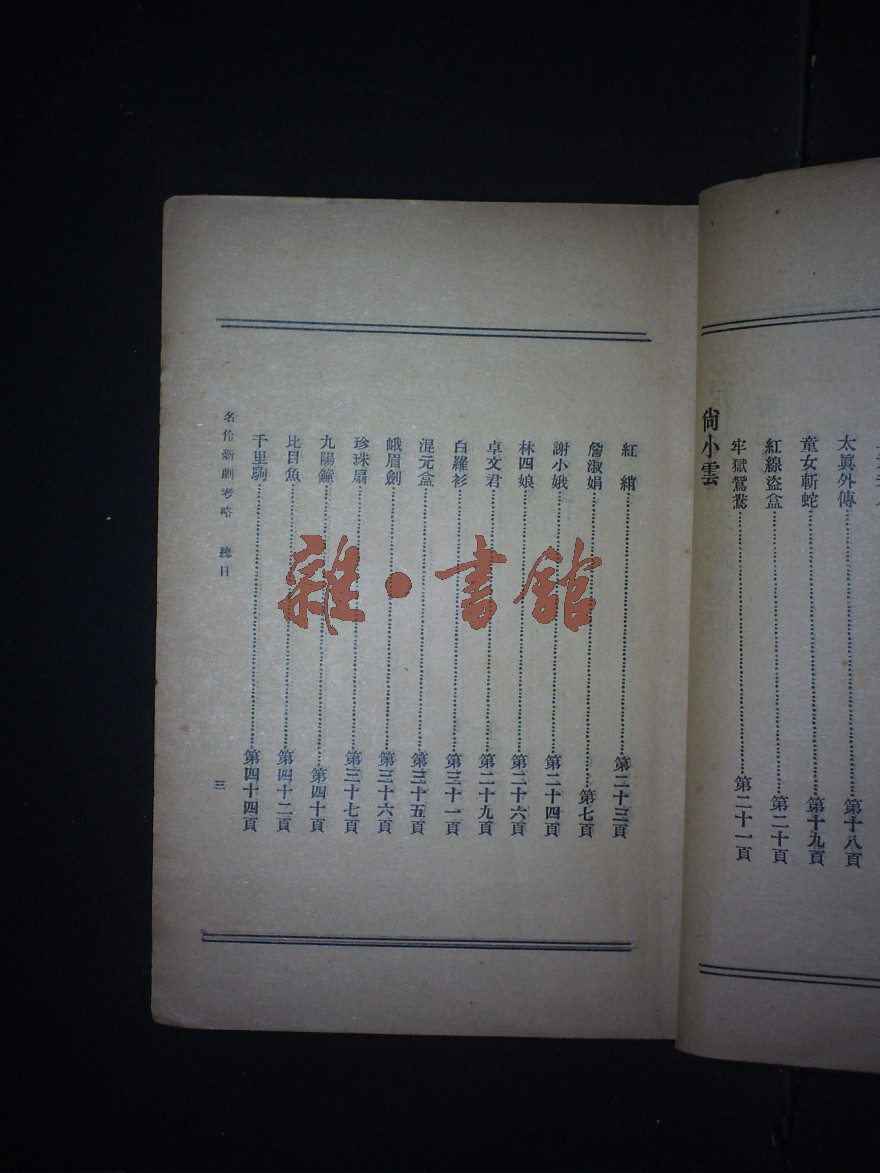 太眞外傳⋯⋯第十八頁
童女斬蛇⋯⋯第十九頁
紅線盜盒⋯⋯第二十頁
牢獄鴛鴦⋯⋯第二十一頁
尙小雲
紅綃⋯⋯第二十三頁
詹淑娟⋯⋯第七頁
謝小娥⋯⋯第二十四頁
林四娘⋯⋯第二十六頁
卓文君⋯⋯第二十九頁
白羅衫⋯⋯第三十一頁
混元盒⋯⋯第三十五頁
峨眉劍⋯⋯第三十六頁
珍珠扇⋯⋯第三十七頁
九陽鐘⋯⋯第四十頁
比目魚⋯⋯第四十二頁
千里駒⋯⋯第四十四頁
名伶新劇考略 總目
三
雜·書館